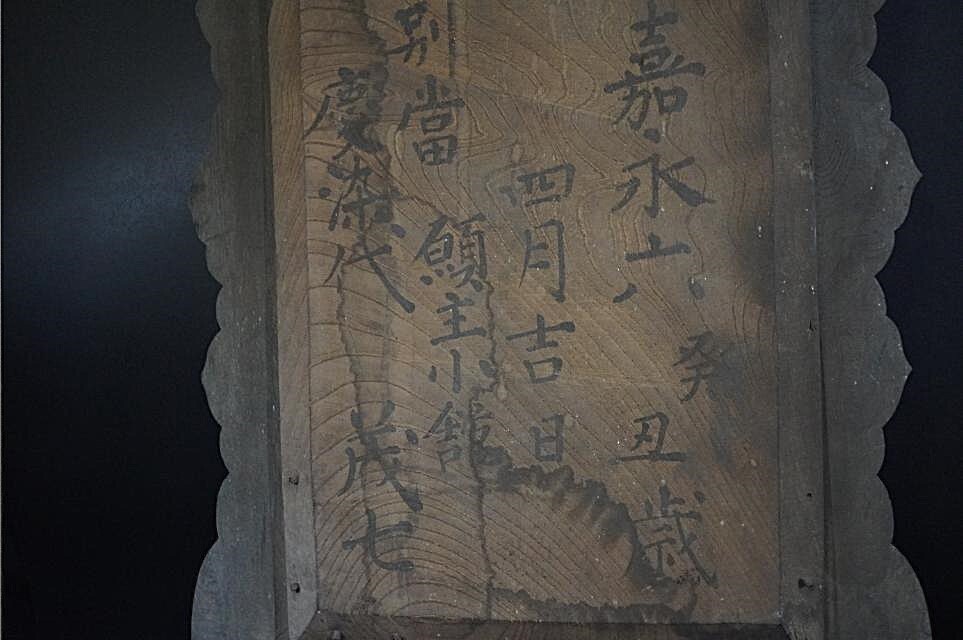 嘉永六癸丑歳
四月吉日
別當 願主小舘
慶染代 茂七